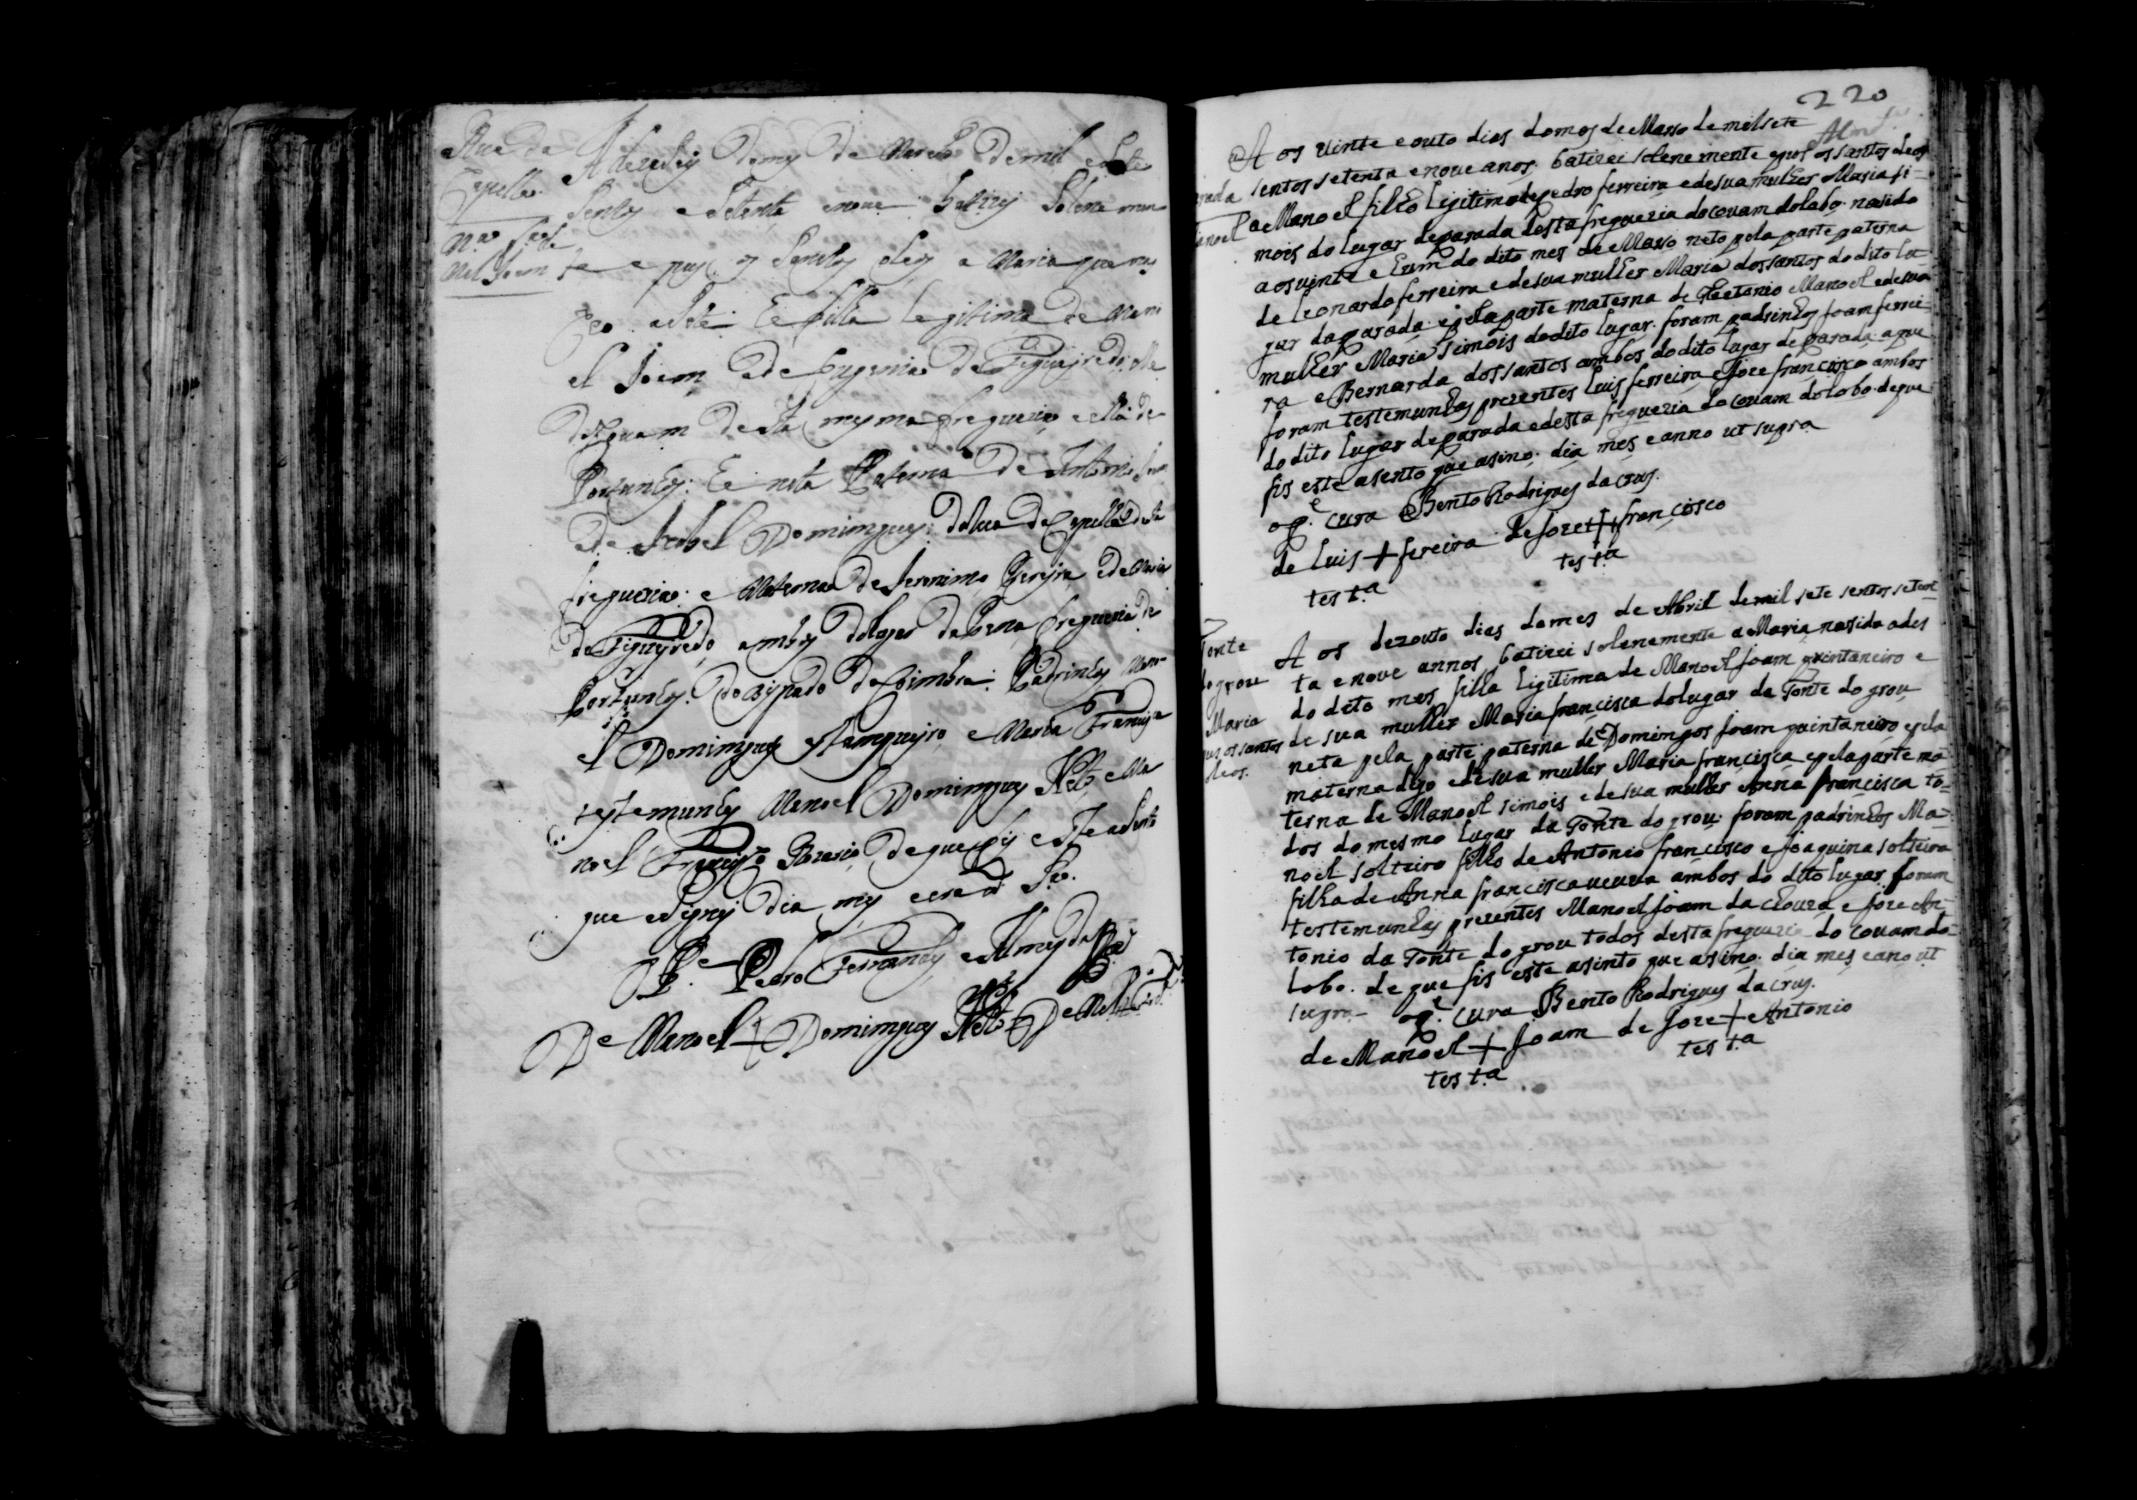 Rua da
Capella
Ma. f.ª de
Mel Joam
A dezaseis do mes de Março de mil e sete
sentos e setenta e nove batizei solenemen
te e pus os Santos oleos a Maria que nas
ceo a sete he filha legitima de Mano
el Joam e de Eugenia de Figueyredo
desta mesma freguezia e ella de
Portunhos: he neta Paterna de Antonio Joam
e de Izabel Domingues da Rua da Capella desta
freguezia: e Materna de Jeronimo Pereyra e de Maria
de Figueyredo ambos do lugar da Pena freguezia de
Portunhos Bispado de Coimbra: Padrinhos Mano
el Domingues e Maria Francisca
testemunhas Manoel Domingues Netto e Ma
noel Francisco de que fis este asento
que asigney dia mes e era ut S.ª
O P.e Pedro Fernandes e Almeyda
De Manoel + Domingues Netto De Mel +
220
Aos vinte e outo dias do mes de Marso de mil sete
sentos setenta e nove anos batizei solenemente e pus os santos oleos
a Manoel filho ligitimo de Pedro ferreira e de sua mulher Maria si-
mois do lugar de parada desta freguezia do couam do lobo nasido
aos vinte e hum do dito mes de Marso neto pela parte paterna
de leonardo ferreira e de sua mulher Maria dos santos do dito lu
gar da parada e pela parte materna de Caetanio Manoel e de sua
mulher Maria simois do dito lugar foram padrinhos joam ferrei-
ra e Bernarda dos santos ambos do dito lugar de parada a que
foram testemunhas prezentes luis ferreira e joze francisco ambos
do dito lugar de parada e desta freguezia do couam do lobo de que
fis este asento que asino dia mes e anno ut supra
o p.e cura Bento Rodrigues da crus.
de luis + fereira de joze + francisco
test.a test.a
Fonte
do grou
Maria
pus os santos
oleos.
Aos dezouto dias do mes de Abril de mil sete sentos seten-
ta e nove annos batizei solenamente a Maria nasida a des
do dito mes filha ligitima de Manoel joam quintaneiro e
de sua mulher Maria francisca do lugar da Fonte do grou
neta pela parte paterna de Domingos joam quintaneiro e pela
materna digo e de sua mulher Maria francisca e pela parte ma
terna de Manoel simois e de sua mulher Anna francisca to-
dos do mesmo lugar da Fonte do grou: foram padrinhos Ma-
noel solteiro filho de Antonio francisco e joaquina solteira
filha de Anna francisca veuva ambos do dito lugar foram
testemunhas prezentes Manoel joam da chouza e joze An-
tonio da Fonte do grou todos desta freguezia do couam do
lobo. de que fis este asinto que asino dia mes e ano ut
supra o p.e cura Bento Rodrigues da crus.
de Manoel + joam de joze + Antonio
test.a test.a